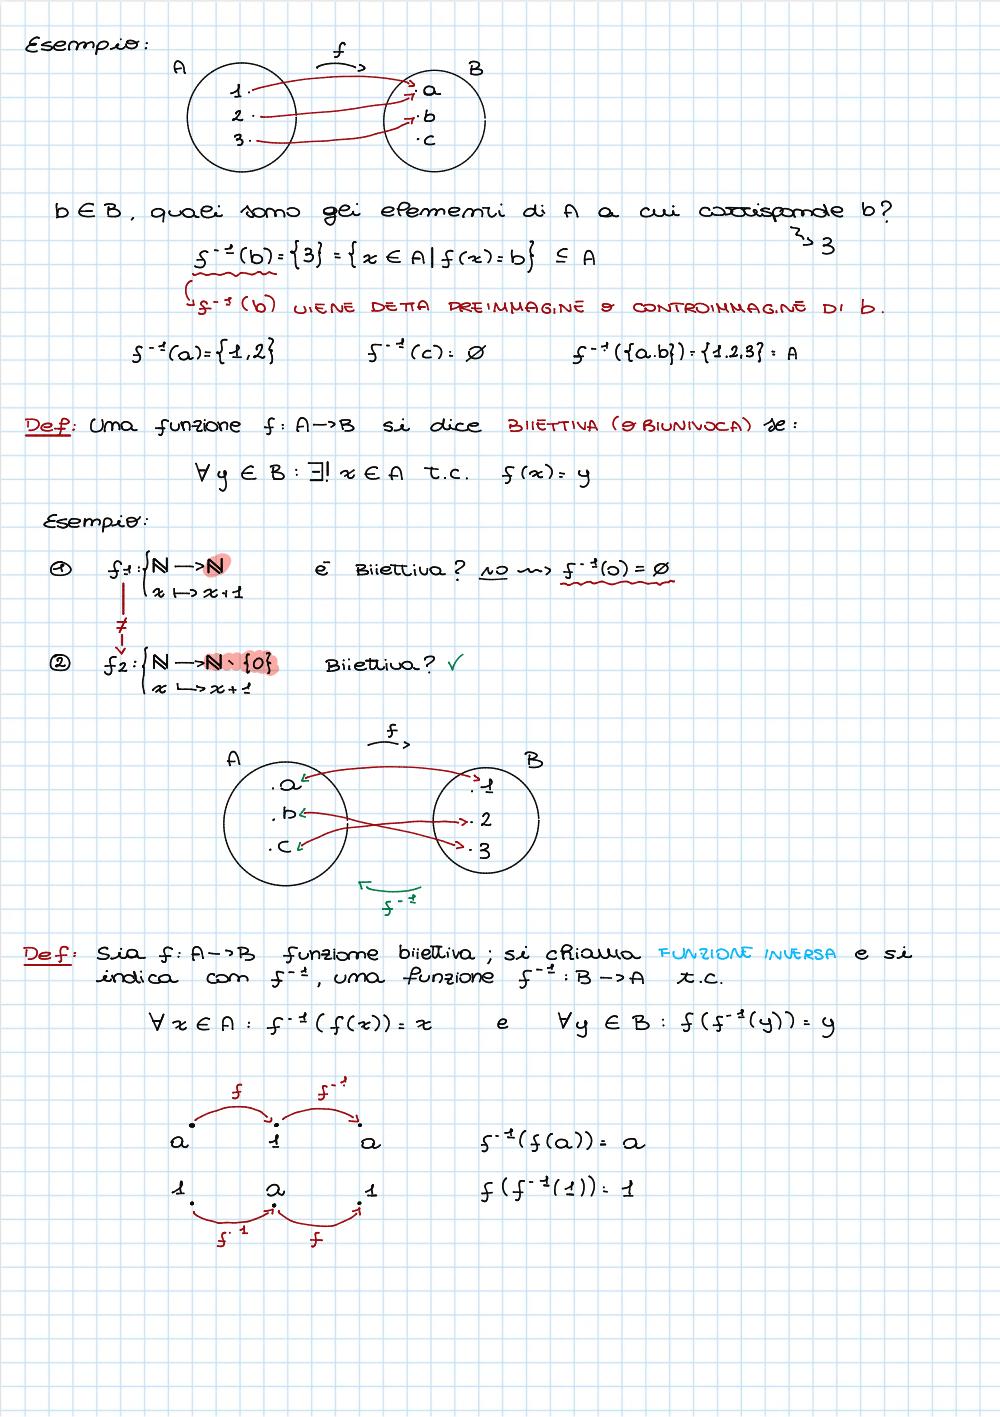 Esempio:
f
A B
1 a
2 b
3 c
b ∈ B, quali sono gli elementi di A a cui corrisponde b?
3
f⁻¹(b) = {3} = {x ∈ A | f(x) = b} ⊆ A
f⁻¹(b) VIENE DETTA PREIMMAGINE O CONTROIMMAGINE DI b.
f⁻¹(a) = {1,2} f⁻¹(c) = ∅ f⁻¹({a,b}) = {1,2,3} = A
Def: Una funzione f: A→B si dice BIIETTIVA (O BIUNIVOCA) se:
∀ y ∈ B : ∃! x ∈ A t.c. f(x) = y
Esempio:
① f₁: { ℕ → ℕ è Biiettiva? NO ⇝ f⁻¹(0) = ∅
x ↦ x+1
≠
② f₂: { ℕ → ℕ \ {0} Biiettiva? ✓
x ↦ x+1
f
A B
a 1
b 2
c 3
f⁻¹
Def: Sia f: A→B funzione biiettiva; si chiama FUNZIONE INVERSA e si
indica con f⁻¹, una funzione f⁻¹: B→A t.c.
∀ x ∈ A : f⁻¹(f(x)) = x e ∀ y ∈ B : f(f⁻¹(y)) = y
f f⁻¹
a 1 a f⁻¹(f(a)) = a
1 a 1 f(f⁻¹(1)) = 1
f⁻¹ f